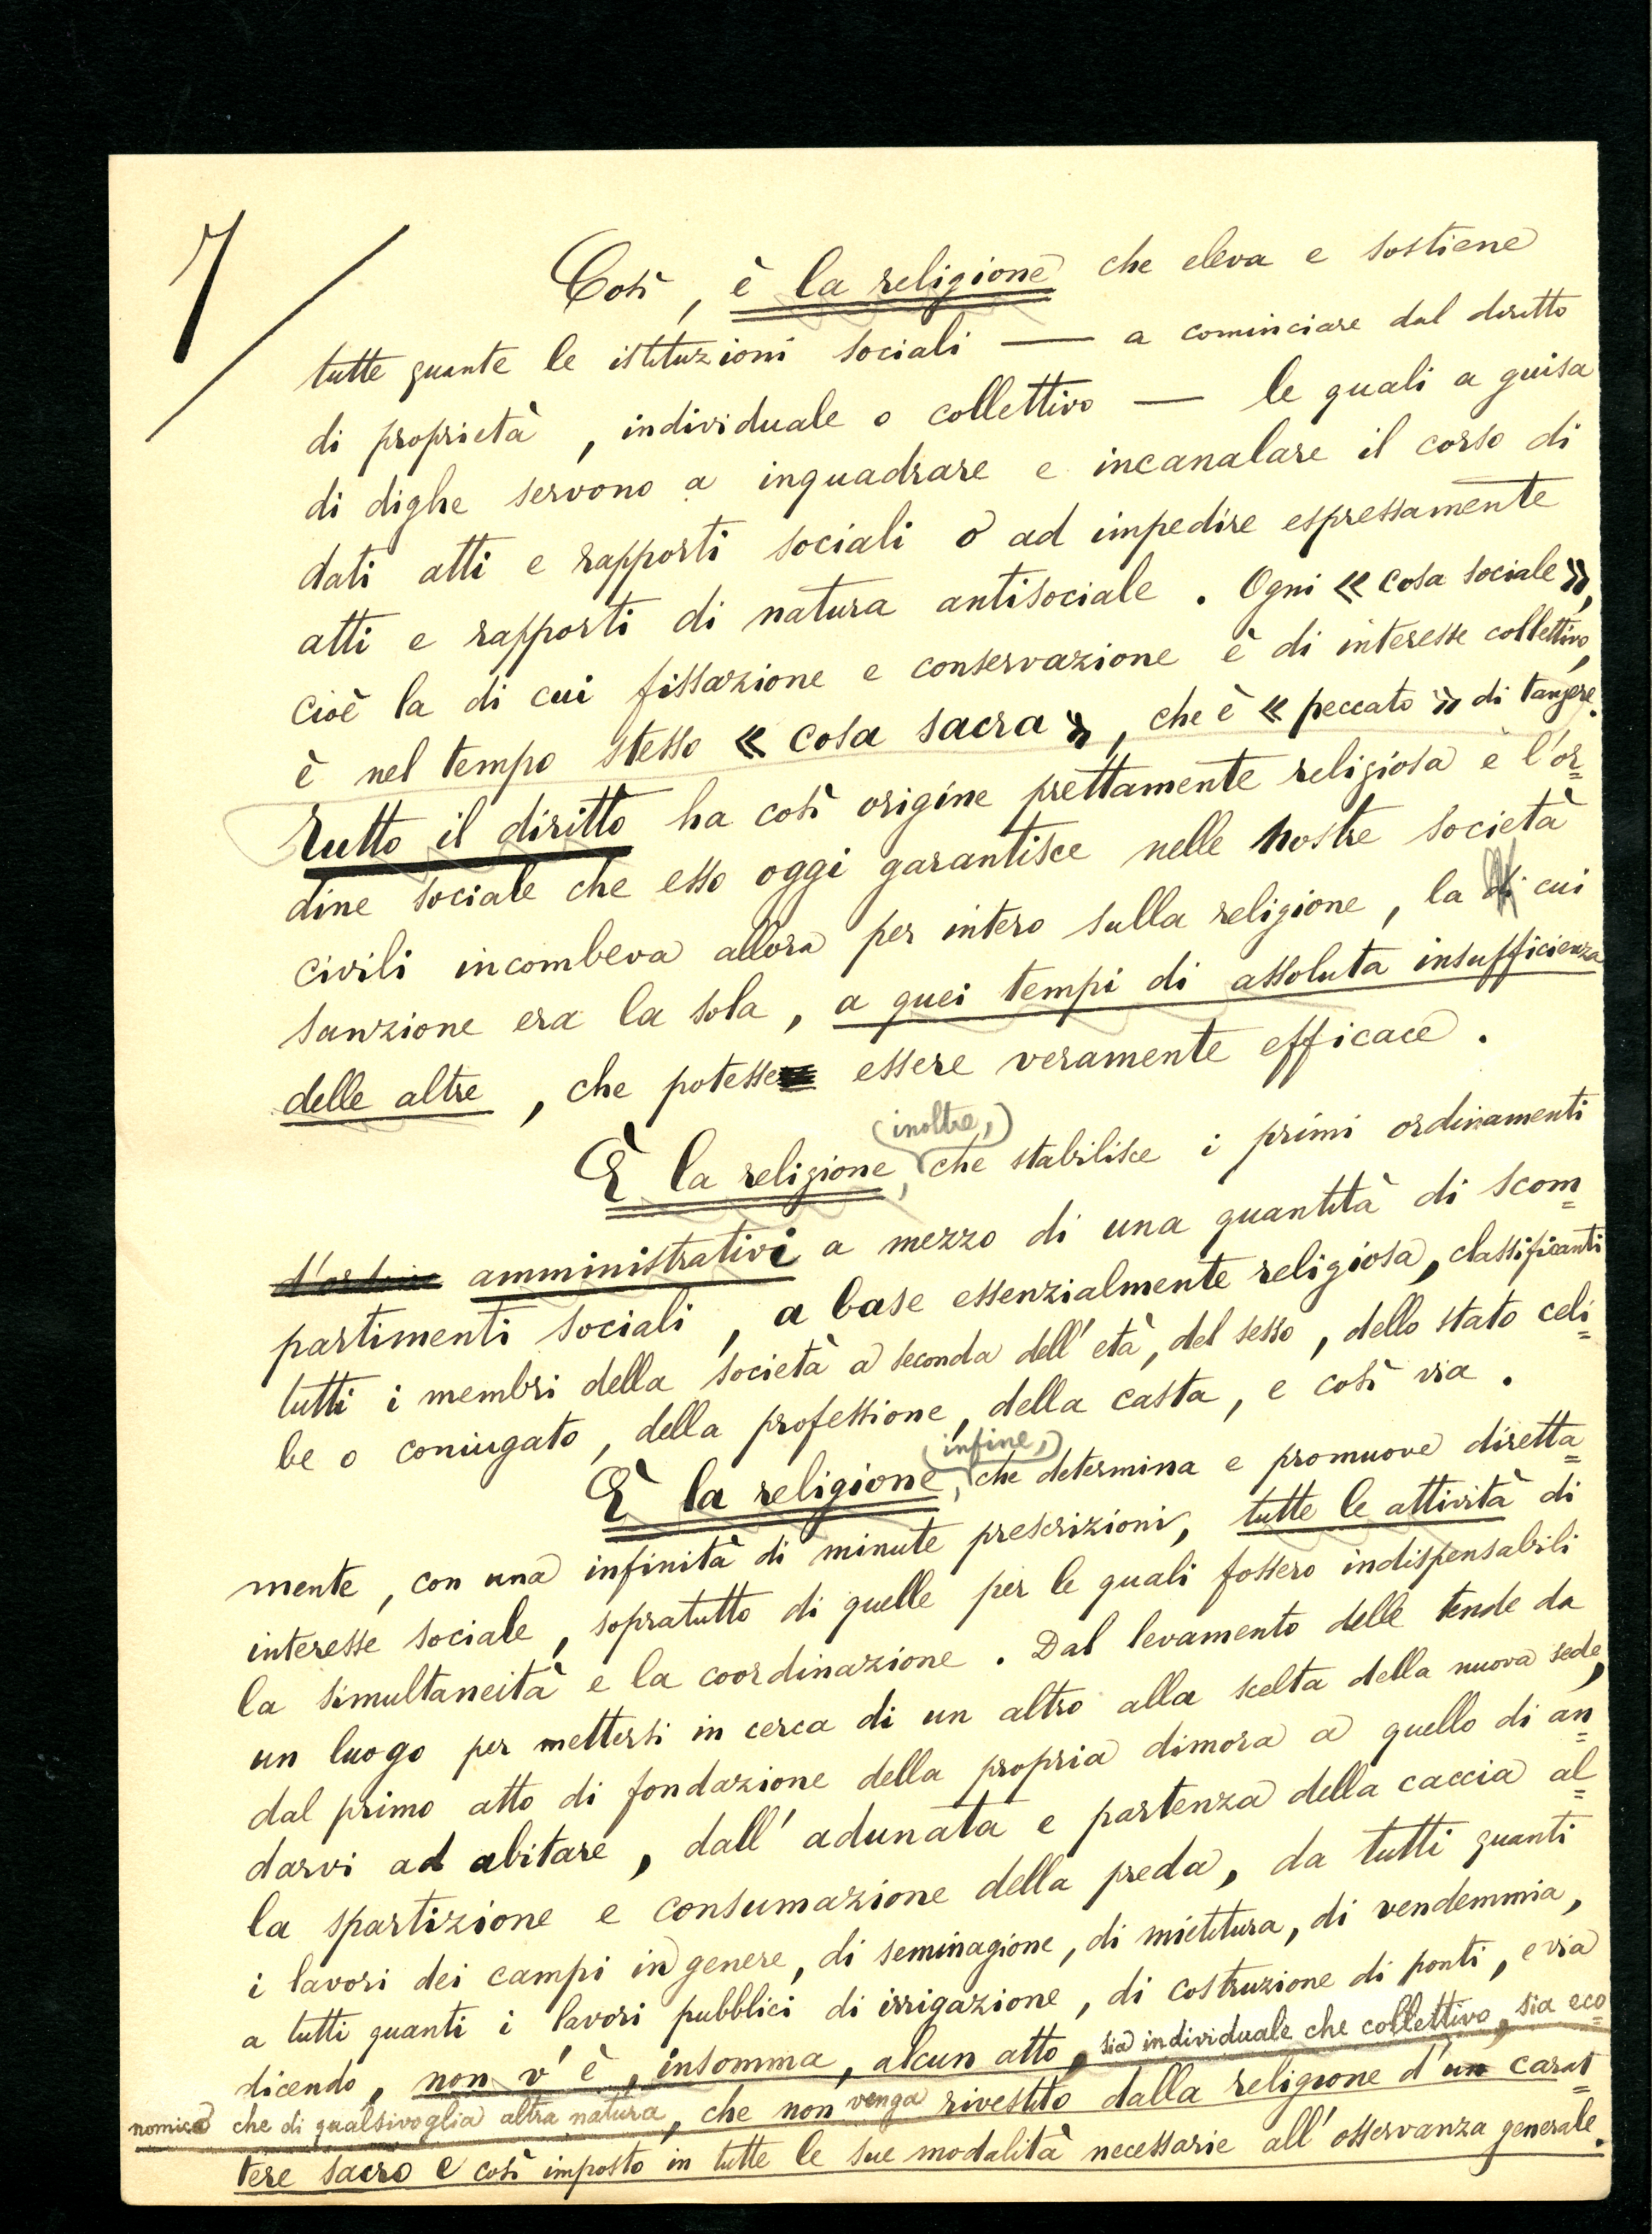 7/
Così, è la religione che eleva e sostiene
tutte quante le istituzioni sociali — a cominciare dal diritto
di proprietà, individuale o collettivo — le quali a guisa
di dighe servono a inquadrare e incanalare il corso di
dati atti e rapporti sociali o ad impedire espressamente
atti e rapporti di natura antisociale. Ogni « cosa sociale »,
cioè la di cui fissazione e conservazione è di interesse collettivo,
è nel tempo stesso « cosa sacra », che è « peccato » di tangere.
Tutto il diritto ha così origine prettamente religiosa e l'or=
dine sociale che esso oggi garantisce nelle nostre società
civili incombeva allora per intero sulla religione, la di cui
sanzione era la sola, a quei tempi di assoluta insufficienza
delle altre, che potesse essere veramente efficace.
(inoltre,)
È la religione, che stabilisce i primi ordinamenti
d'ordine amministrativi a mezzo di una quantità di scom=
partimenti sociali, a base essenzialmente religiosa, classificanti
tutti i membri della società a seconda dell'età, del sesso, dello stato celi=
be o coniugato, della professione, della casta, e così via.
(infine,)
È la religione, che determina e promuove diretta=
mente, con una infinità di minute prescrizioni, tutte le attività di
interesse sociale, sopratutto di quelle per le quali fossero indispensabili
la simultaneità e la coordinazione. Dal levamento delle tende da
un luogo per mettersi in cerca di un altro alla scelta della nuova sede,
dal primo atto di fondazione della propria dimora a quello di an=
darvi ad abitare, dall'adunata e partenza della caccia al=
la spartizione e consumazione della preda, da tutti quanti
i lavori dei campi in genere, di seminagione, di mietitura, di vendemmia,
a tutti quanti i lavori pubblici di irrigazione, di costruzione di ponti, e via
dicendo, non v'è, insomma, alcun atto, sia individuale che collettivo, sia eco=
nomica che di qualsivoglia altra natura, che non venga rivestito dalla religione d'un carat=
tere sacro e così imposto in tutte le sue modalità necessarie all'osservanza generale.